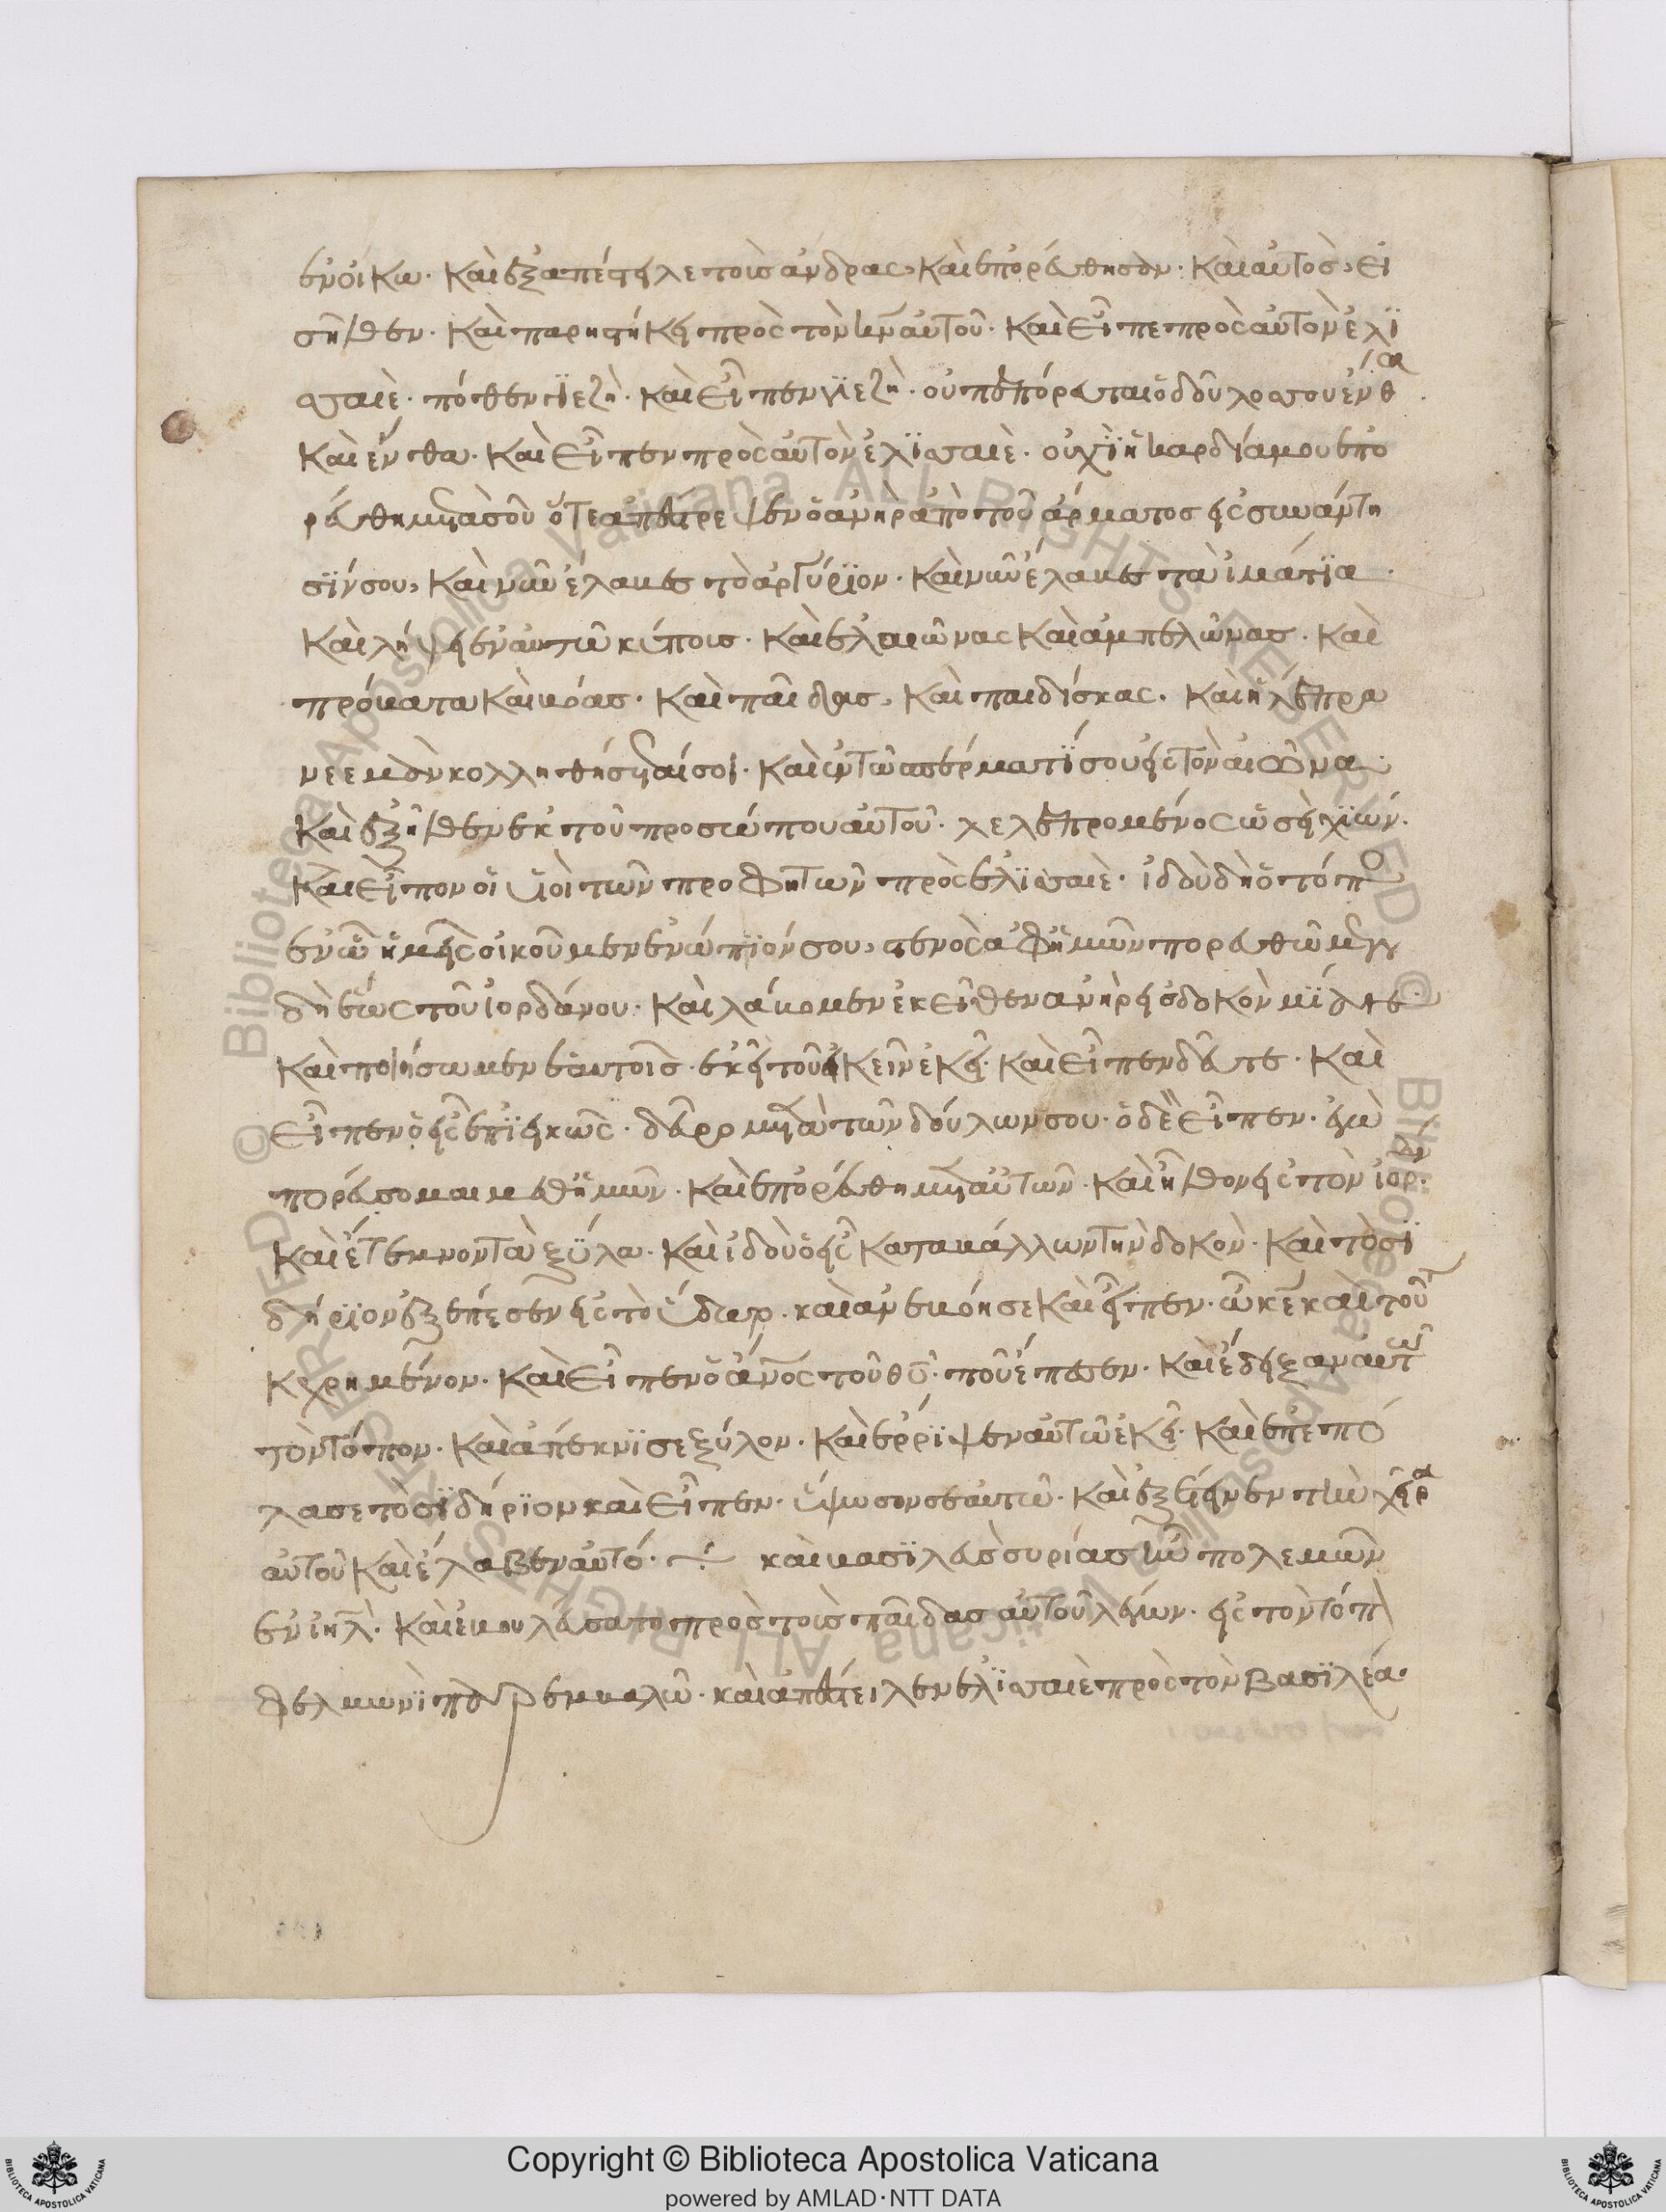 ἐν οἴκω· καὶ ἐξαπέστειλε τοὺς ἄνδρας, καὶ ἐπορεύθησαν· καὶ αὐτὸς, εἰ
σῆλθεν· καὶ παρηστήκει πρὸς τὸν κν αὐτοῦ· καὶ εἶπε πρὸς αὐτὸν ἐλϊ
σσαιὲ· πόθεν γϊεζὴ· καὶ εἶπεν γϊεζὴ· οὐ πεπόρευται ὁ δοῦλος σου ἔνθα
καὶ ἔνθα· καὶ εἶπεν πρὸς αὐτὸν ἐλϊσσαιὲ· οὐχὶ ἡ καρδία μου ἐπο
ρεύθη μετὰ σοῦ ὅτε ἀπέστρεψεν ὁ ἀνὴρ ἀπὸ τοῦ ἅρματος εἰς συνάντη
σϊν σου, καὶ νῦν ἔλαβες τὸ ἀργύρϊον· καὶ νῦν ἔλαβες τὰ ἱμάτϊα·
καὶ λήψει ἐν αὐτῶ κήποις· καὶ ἐλαιῶνας καὶ ἀμπελῶνας· καὶ
πρόβατα καὶ βόας· καὶ παῖδας, καὶ παιδίσκας· καὶ ἡ λέπρα
νεεμὰν κολληθήσεταί σοι· καὶ ἐν τῶ σπέρματϊ σου εἰς τὸν αἰῶνα·
καὶ ἐξῆλθεν ἐκ τοῦ προσώπου αὐτοῦ· λελεπρομένος ὡσεὶ χϊών·
καὶ εἶπον οἱ υἱοὶ τῶν προφητῶν πρὸς ἐλϊσσαιὲ· ἰδοὺ δὴ ὁ τόπο
ἐν ὧ ἡμεῖς οἰκοῦμεν ἐνώπϊόν σου, στενὸς ἀφ' ἡμῶν πορευθῶμεν
δὴ ἕως τοῦ ἰορδάνου· καὶ λάβομεν ἐκεῖθεν ἀνὴρ εἷς δοκὸν μϊὰν
καὶ ποιήσωμεν ἑαυτοῖς ἐκεῖ τοῦ οἰκεῖν ἐκεῖ· καὶ εἶπεν δεῦτε· καὶ
εἶπεν ὁ εἷς ἐπϊεικῶς· δεῦρο μετὰ τῶν δούλων σου· ὁ δὲ εἶπεν· ἐγὼ
πορεύσομαι μεθ' ἡμῶν· καὶ ἐπορεύθη μετ' αὐτῶν· καὶ ἦλθον εἰς τὸν ἰορ·
καὶ ἔτεμνον τὰ ξύλα· καὶ ἰδοὺ ὁ εἷς καταβάλλων τὴν δοκὸν· καὶ τὸ σϊ
δήρϊον ἐξέπεσεν εἰς τὸ ὕδωρ· καὶ ἀνεβόησε καὶ εἶπεν· ὦ κε καὶ τοῦτ
κεχρημένον· καὶ εἶπεν ὁ ἄνος τοῦ θυ· ποῦ ἔπεσεν· καὶ ἔδειξαν αὐτῶ
τὸν τόπον· καὶ ἀπέκνϊσε ξύλον· καὶ ἔρρϊψεν αὐτῶ ἐκεῖ· καὶ ἐπεπό
λασε τὸ σϊδήρϊον καὶ εἶπεν· ὕψωσον σεαυτῶ· καὶ ἐξέτεινεν τὴν χεῖρα
αὐτοῦ καὶ ἔλαβεν αὐτό· καὶ βασϊλεὺς συρίας ἦν πολεμῶν
ἐν ιηλ· καὶ ἐβουλεύσατο πρὸς τοὺς παῖδας αὐτοῦ λέγων· εἰς τὸν τόπ
φελμωνὶ παρεμβαλῶ· καὶ ἀπέστειλεν ἐλϊσσαιὲ πρὸς τὸν βασϊλέα·